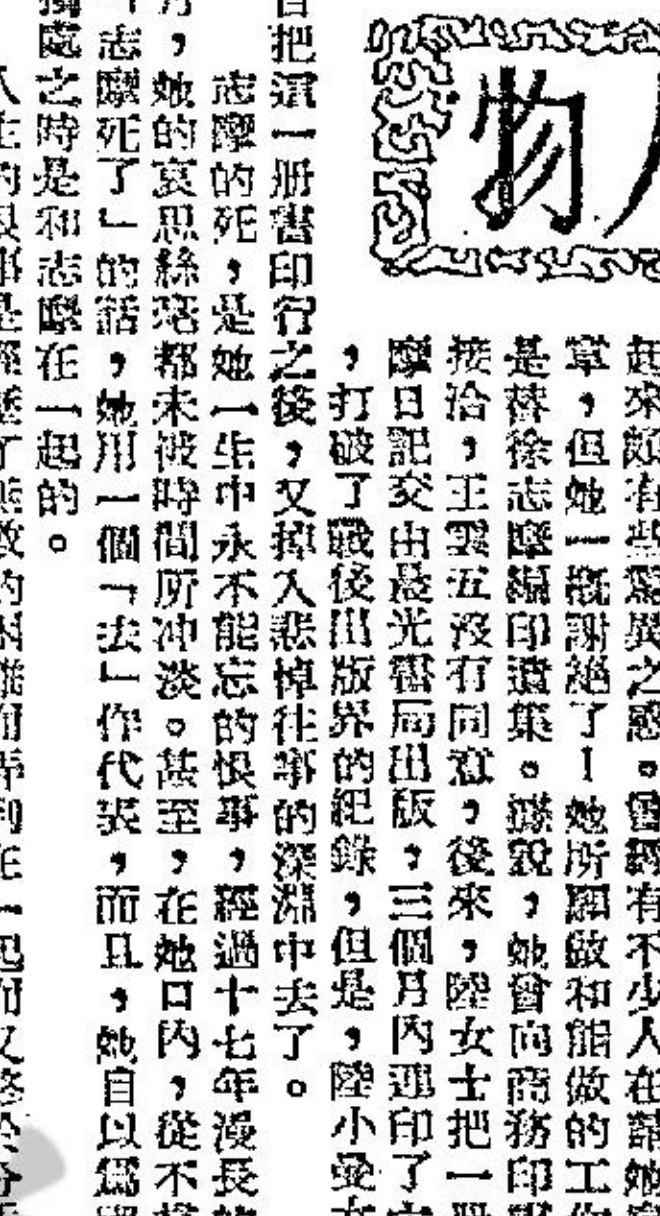 人物
起來頗有些驚異之感。曾經有不少人在請她
章,但她一概謝絕了!她所願做和能做的工作
是替徐志摩編印遺集。據說,她曾向商務印書
接洽,王雲五沒有同意,後來,陸女士把一冊
摩日記交由晨光書局出版,三個月內連印了
,打破了戰後出版界的紀錄,但是,陸小曼女
把這一册書印行之後,又掉入悲悼往事的深淵中去了。
志摩的死,是她一生中永不能忘的恨事,經過十七年漫長的
月,她的哀思絲毫都未被時間所冲淡。甚至,在她口內,從不
「志摩死了」的話,她用一個「去」作代表,而且,她自以爲
處之時是和志摩在一起的。